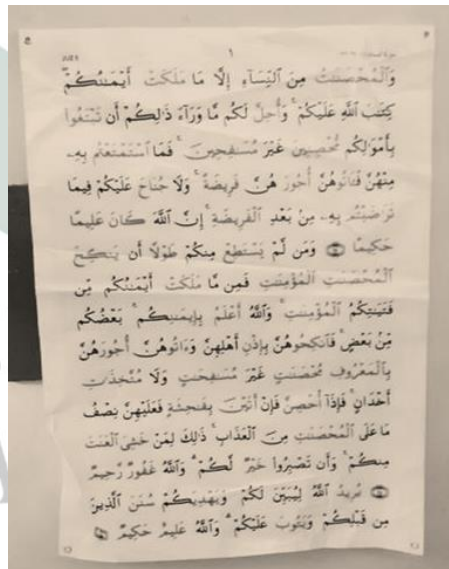 ١
وَٱلْمُحْصَنَٰتُ مِنَ ٱلنِّسَآءِ إِلَّا مَا مَلَكَتْ أَيْمَٰنُكُمْ
كِتَٰبَ ٱللَّهِ عَلَيْكُمْ ۚ وَأُحِلَّ لَكُم مَّا وَرَآءَ ذَٰلِكُمْ أَن تَبْتَغُوا۟
بِأَمْوَٰلِكُم مُّحْصِنِينَ غَيْرَ مُسَٰفِحِينَ ۚ فَمَا ٱسْتَمْتَعْتُم بِهِۦ
مِنْهُنَّ فَـَٔاتُوهُنَّ أُجُورَهُنَّ فَرِيضَةً ۚ وَلَا جُنَاحَ عَلَيْكُمْ فِيمَا
تَرَٰضَيْتُم بِهِۦ مِنۢ بَعْدِ ٱلْفَرِيضَةِ ۚ إِنَّ ٱللَّهَ كَانَ عَلِيمًا
حَكِيمًا وَمَن لَّمْ يَسْتَطِعْ مِنكُمْ طَوْلًا أَن يَنكِحَ
ٱلْمُحْصَنَٰتِ ٱلْمُؤْمِنَٰتِ فَمِن مَّا مَلَكَتْ أَيْمَٰنُكُم مِّن
فَتَيَٰتِكُمُ ٱلْمُؤْمِنَٰتِ ۚ وَٱللَّهُ أَعْلَمُ بِإِيمَٰنِكُم ۚ بَعْضُكُم
مِّنۢ بَعْضٍ ۚ فَٱنكِحُوهُنَّ بِإِذْنِ أَهْلِهِنَّ وَءَاتُوهُنَّ أُجُورَهُنَّ
بِٱلْمَعْرُوفِ مُحْصَنَٰتٍ غَيْرَ مُسَٰفِحَٰتٍ وَلَا مُتَّخِذَٰتِ
أَخْدَانٍ ۚ فَإِذَآ أُحْصِنَّ فَإِنْ أَتَيْنَ بِفَٰحِشَةٍ فَعَلَيْهِنَّ نِصْفُ
مَا عَلَى ٱلْمُحْصَنَٰتِ مِنَ ٱلْعَذَابِ ۚ ذَٰلِكَ لِمَنْ خَشِىَ ٱلْعَنَتَ
مِنكُمْ ۚ وَأَن تَصْبِرُوا۟ خَيْرٌ لَّكُمْ ۗ وَٱللَّهُ غَفُورٌ رَّحِيمٌ
يُرِيدُ ٱللَّهُ لِيُبَيِّنَ لَكُمْ وَيَهْدِيَكُمْ سُنَنَ ٱلَّذِينَ
مِن قَبْلِكُمْ وَيَتُوبَ عَلَيْكُمْ ۗ وَٱللَّهُ عَلِيمٌ حَكِيمٌ